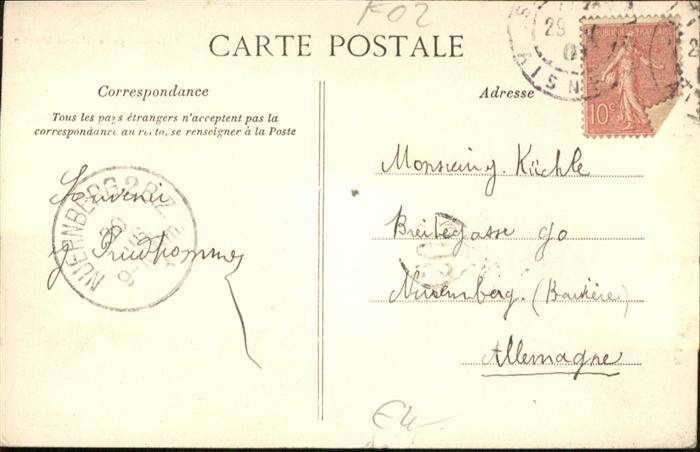 K02
CARTE POSTALE
Correspondance
Tous les pays étrangers n'acceptent pas la
correspondance au recto, se renseigner à la Poste
Souvenir
y Prudhommes
NUERNBERG 2.B.Z.
Adresse
29
AISNE
REPUBLIQUE FRANÇAISE
10c
Monsieur J. Küchle
Breitegasse 90
Nuremberg. (Bavière)
Allemagne